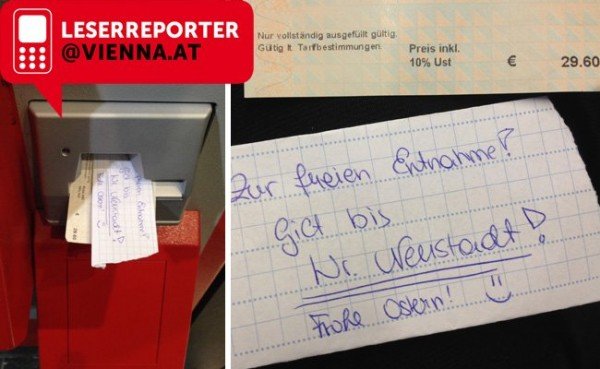 LESERREPORTER
@VIENNA.AT
Nur vollständig ausgefüllt gültig.
Gültig lt. Tarifbestimmungen.
Preis inkl.
10% Ust € 29.60
Zur freien Entnahme!
Gilt bis
Wr. Neustadt!
Frohe Ostern! :)